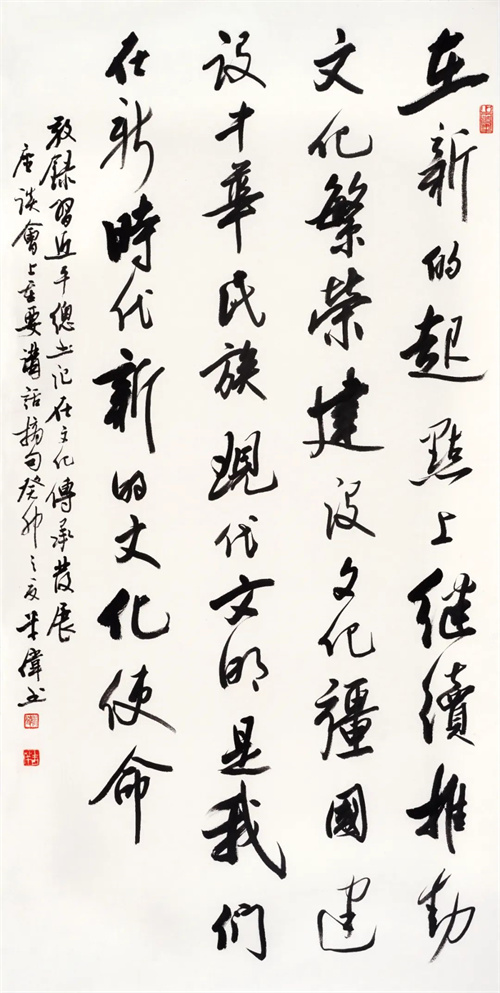 在新的起點上继續推動
文化繁榮建设文化彊國建
设中華民族現代文明是我们
在新時代新的文化使命
敬録習近平總书记在文化傳承發展
座谈會上重要講話摘句癸卯之夏偉书